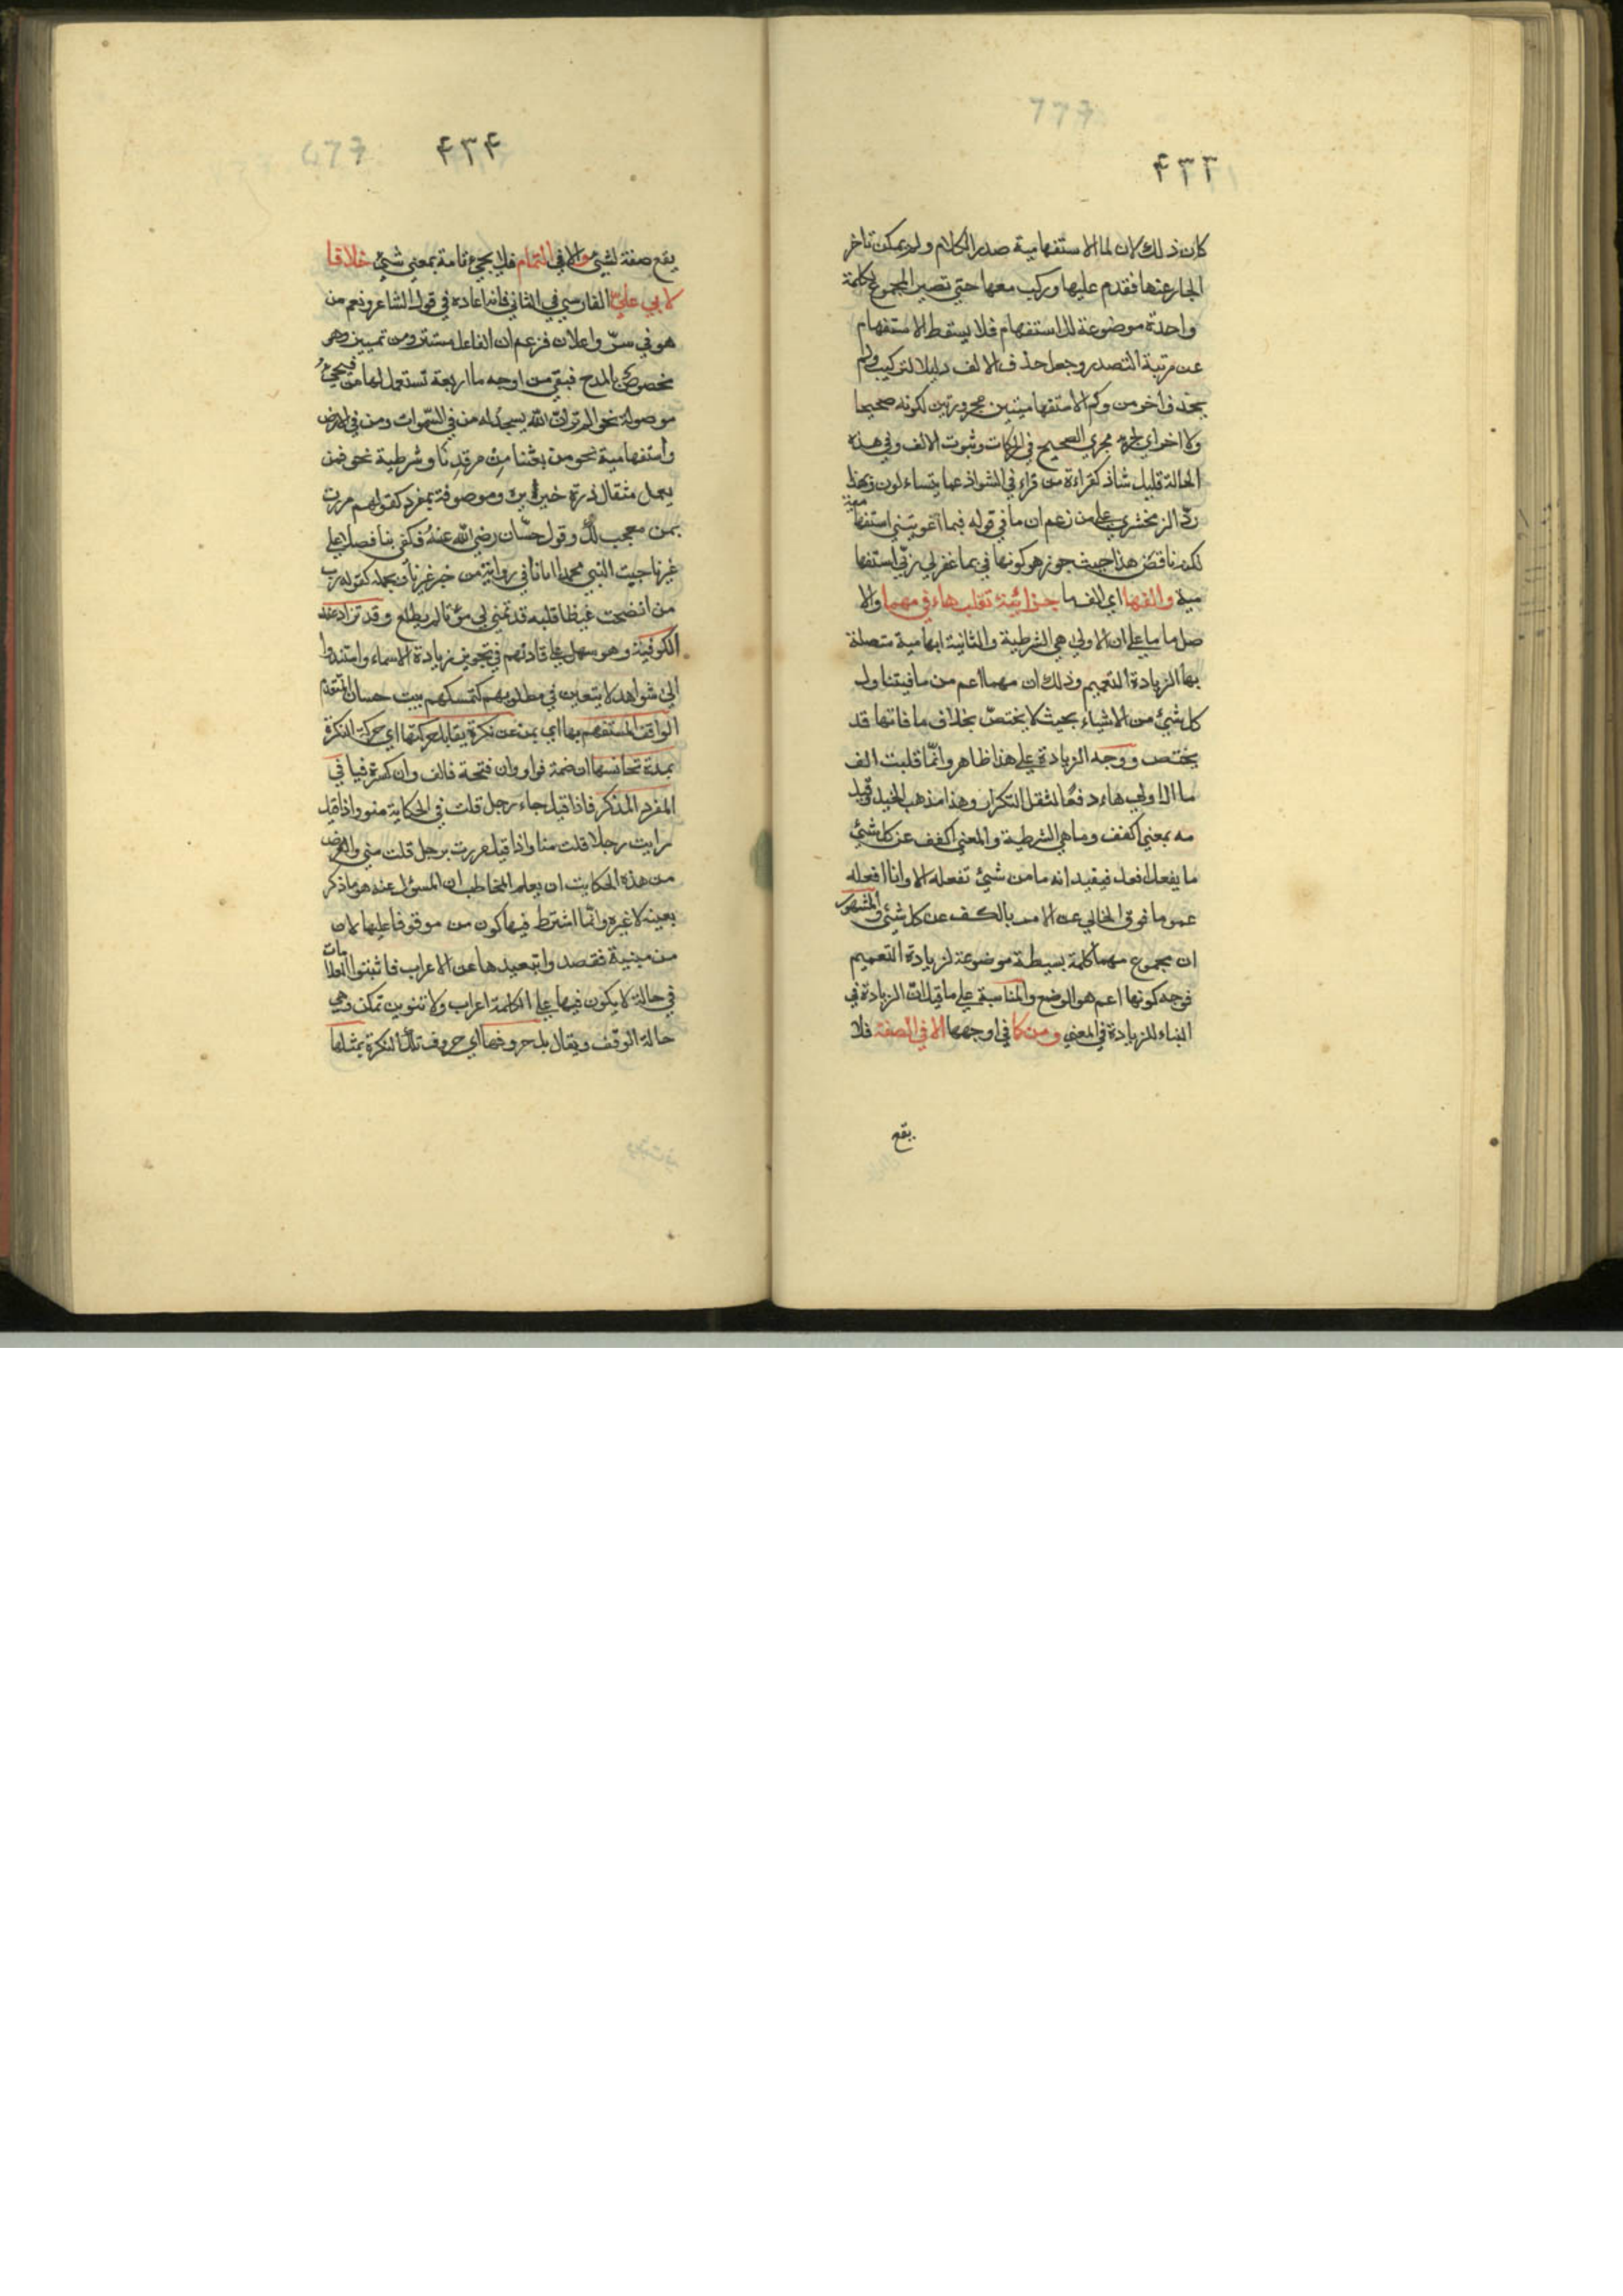 777
۴۳۳
كان ذلك لان لما الاستفهامية صدر الكلام ولم يمكن تاخر
الجار عنها فقدم عليها وركب معها حتى تصير المجموع كلمة
واحدة موضوعة للاستفهام فلا يسقط الاستفهام
عن مرتبة التصدر وجعل حذف الالف دليلا لتركيب ولم
يحذف اخر من وكم الاستفهاميتين مجرورتين لكونه صحيحا
ولا اخر اي لجريه مجري الصحيح في الحركات وثبوت الالف في هذه
الحالة قليل شاذ كقراءة من قراء في الشواذ عما يتساءلون وبهذا
ردّ الزمخشري علي من زعم ان ما في قوله فبما اغويتني استفها مية
لكنه ناقض هذا حيث جوز هو كونها في بما غفرلي ربّي استفها
مية والفها اي الف ما جزائية تقلب هاء في مهما والا
صل ما ما علي ان الاولي هي الشرطية والثانية ابهامية متصلة
بها الزيادة التعميم وذلك ان مهما اعم من ما فيتناول
كل شئ من الاشياء بحيث لا يختصّ بخلاف ما فانها قد
يختص ووجه الزيادة علي هذا ظاهر وانّما قلبت الف
ما الاولي هاء دفعًا لثقل التكرار وهذا مذهب الخليل وقيل
مه بمعني اكفف وما هي الشرطية والمعني اكفف عن كل شئ
ما يفعل افعل فيفيد انه ما من شئ تفعله الا وانا افعله
عموما فوق الخالي عن الامر بالكف عن كل شئ والمشهور
ان مجموع مهما كلمة بسيطة موضوعة لزيادة التعميم
فوجه كونها اعم هو الوضع والمناسبة علي ما قيل انّ الزيادة في
البناء للزيادة في المعني ومن كما في اوجهها الا في الصفة فلا
يقع
677
۴۳۴
يقع صفة لشئ والا في التمام فلا يجئ تامة بمعني شئ خلافا
لابي عليّ الفارسي في الثاني فانه اعاده في قول الشاعر ونعم من
هو في سرّ واعلان فزعم ان الفاعل مستتر ومن تمييز وهو
مخصوص بالمدح فبقي من اوجه ما اربعة تستعمل لها من فيجئ
موصولة نحو الم تر انّ الله يسجد له من في السّموات ومن في الارض
واستفهامية نحو من بعثنا من مرقدنا وشرطية نحو فمن
يعمل مثقال ذرة خيرا يره وموصوفة بمفرد كقولهم مررت
بمن معجب لك وقول حسّان رضي الله عنه فكفي بنا فصلا علي
غيرنا حبّ النبي محمد ايانا في رواية من خبر غيرنا وبجملة كقوله رب
من انضجت غيظا قلبه قد تمني لي موتا لم يطع وقد تزاد عند
الكوفية وهو سهل علي قادتهم في تجويز زيادة الاسماء واستندوا
الي شواهد لا يتعين في مطلوبهم كتمسكهم ببيت حسان المتقدم
الواقف المستفهم بها اي بمن عن نكرة يقابل حركتها اي حركة النكرة
بمدة تجانسها ان ضمة فواو وان فتحة فالف وان كسرة فيا في
المفرد المذكر فاذا قيل جاء رجل قلت في الحكاية منو واذا قيل
رايت رجلا قلت منا واذا قيل مررت برجل قلت مني والغرض
من هذه الحكايت ان يعلم المخاطب ان المسؤل عنه هو ما ذكر
بعينه لا غيره وانّما اشترط فيها كون من موقوفا عليها لان
من مبنية فقصدوا تبعيدها عن الاعراب فاثبتوا العلامات
في حالة لا يكون فيها علي الكلمة اعراب ولا تنوين تمكن وهي
حالة الوقف ويقال بل حروفها اي حروف تلك النكرة بمثلها